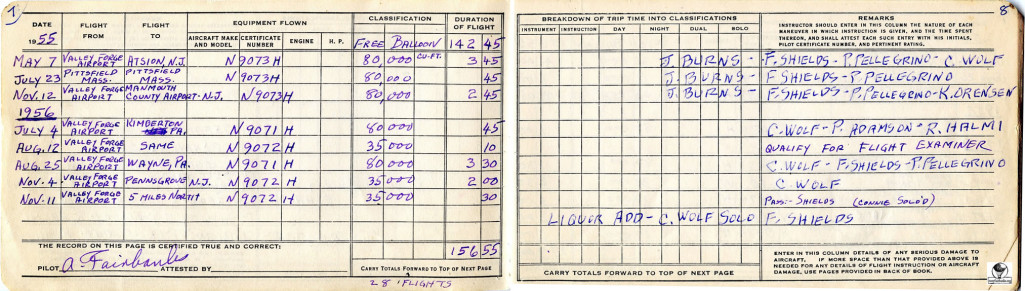 1
DATE
1955
FLIGHT FROM
FLIGHT TO
EQUIPMENT FLOWN
AIRCRAFT MAKE AND MODEL
CERTIFICATE NUMBER
ENGINE
H. P.
CLASSIFICATION
FREE BALLOON
DURATION OF FLIGHT
142 45
MAY 7 VALLEY FORGE AIRPORT ATSION, N.J. N9073H 80,000 CU-FT. 3 45
JULY 23 PITTSFIELD MASS. PITTSFIELD MASS. N9073H 80,000 45
NOV. 12 VALLEY FORGE AIRPORT MANMOUTH COUNTY AIRPORT - N.J. N9073H 80,000 2 45
1956
JULY 4 VALLEY FORGE AIRPORT KIMBERTON PA, N9071H 80000 45
AUG. 12 VALLEY FORGE AIRPORT SAME N9072H 35000 10
AUG. 25 VALLEY FORGE AIRPORT WAYNE, PA. N9071H 80000 3 30
NOV. 4 VALLEY FORGE AIRPORT PENNSGROVE N.J. N9072H 35000 2 00
NOV. 11 VALLEY FORGE AIRPORT 5 MILES NORTH N9072H 35000 30
THE RECORD ON THIS PAGE IS CERTIFIED TRUE AND CORRECT:
156 55
PILOT A. Fairbanks ATTESTED BY
CARRY TOTALS FORWARD TO TOP OF NEXT PAGE
28 FLIGHTS
8
BREAKDOWN OF TRIP TIME INTO CLASSIFICATIONS
INSTRUMENT
INSTRUCTION
DAY
NIGHT
DUAL
SOLO
REMARKS
INSTRUCTOR SHOULD ENTER IN THIS COLUMN THE NATURE OF EACH
MANEUVER IN WHICH INSTRUCTION IS GIVEN, AND THE TIME SPENT
THEREON, AND SHALL ATTEST EACH SUCH ENTRY WITH HIS INITIALS,
PILOT CERTIFICATE NUMBER, AND PERTINENT RATING.
J. BURNS - F. SHIELDS - P. PELLEGRINO - C. WOLF
J. BURNS - F SHIELDS - P. PELLEGRINO
J. BURNS - F SHIELDS - P. PELLEGRINO - K. ORENSEN
C. WOLF - P. ADAMSON - R. HALMI
QUALIFY FOR FLIGHT EXAMINER
C. WOLF - F. SHIELDS - P. PELLEGRINO
C. WOLF
PASS:- SHIELDS (CONNIE SOLO'D)
LIQUOR ADD - C. WOLF SOLO F. SHIELDS
CARRY TOTALS FORWARD TO TOP OF NEXT PAGE
ENTER IN THIS COLUMN DETAILS OF ANY SERIOUS DAMAGE TO
AIRCRAFT. IF MORE SPACE THAN THAT PROVIDED ABOVE IS
NEEDED FOR ANY DETAILS OF FLIGHT INSTRUCTION OR AIRCRAFT
DAMAGE, USE PAGES PROVIDED IN BACK OF BOOK.